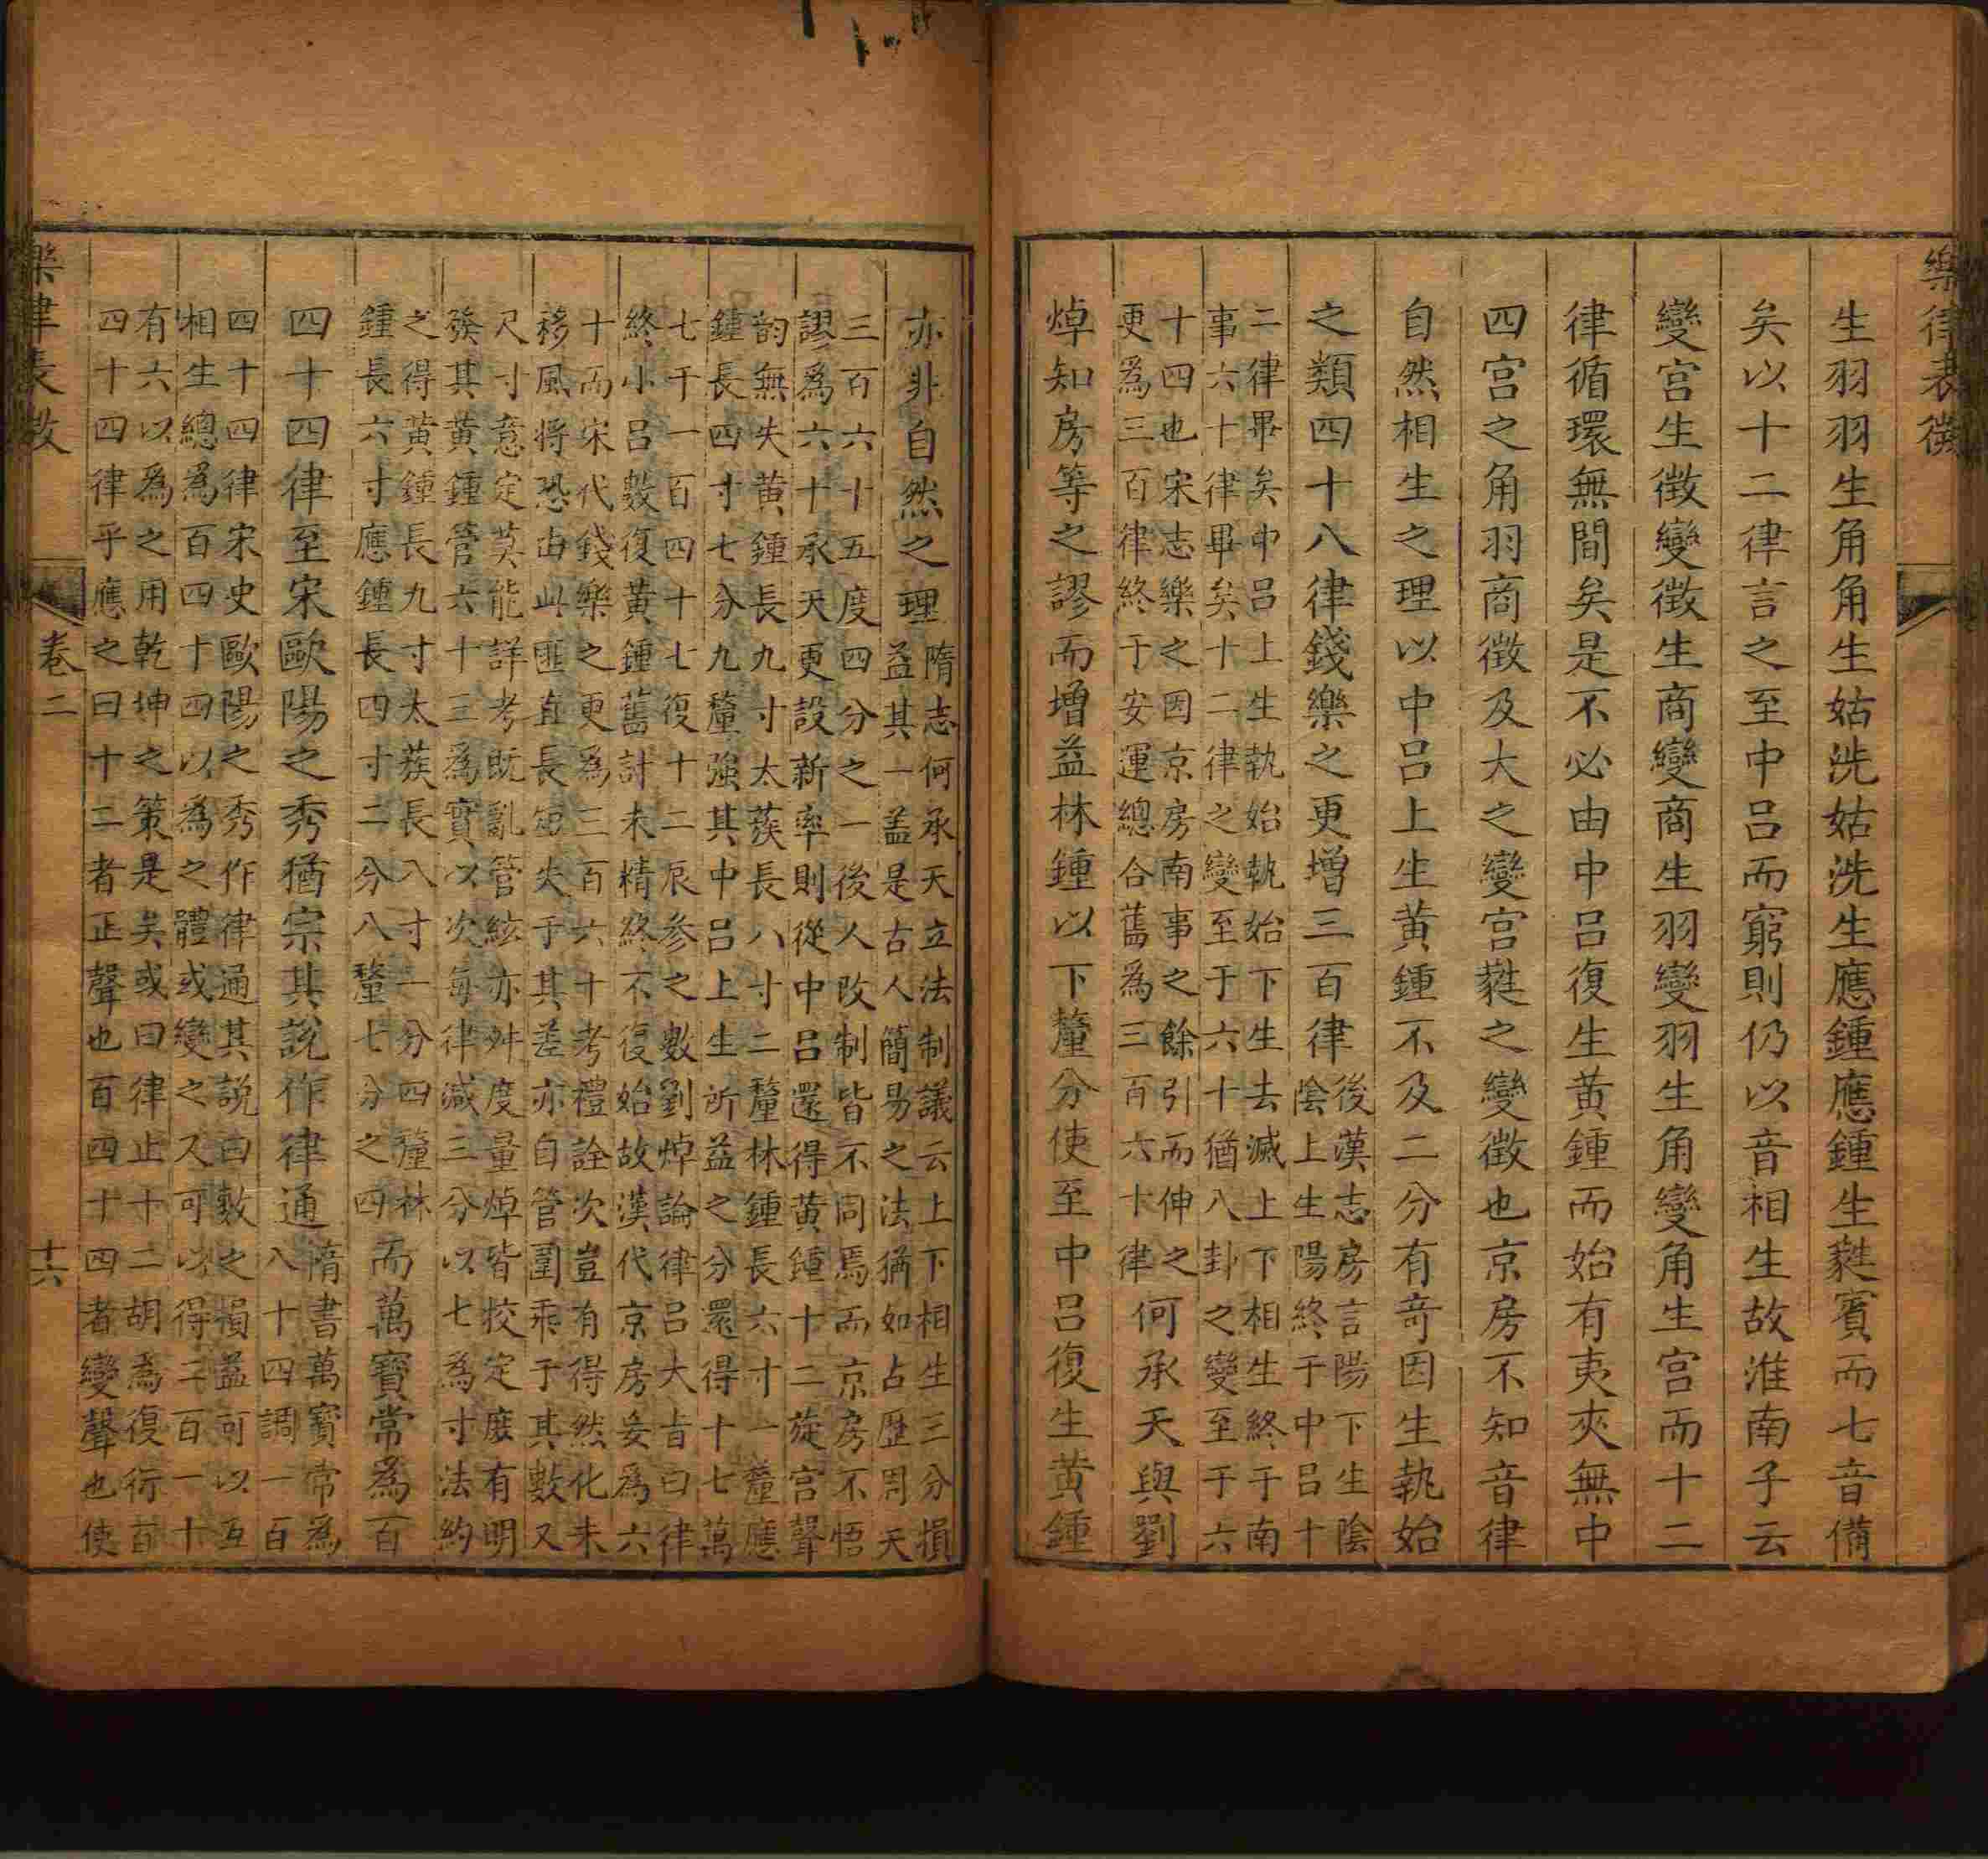 樂律表微
生羽羽生角角生姑洗姑洗生應鍾應鍾生蕤賓而七音備
矣以十二律言之至中呂而窮則仍以音相生故淮南子云
變宫生徴變徴生商變商生羽變羽生角變角生宫而十二
律循環無間矣是不必由中呂復生黃鍾而始有夷夾無中
四宫之角羽商徴及大之變宫蕤之變徴也京房不知音律
自然相生之理以中呂上生黃鍾不及二分有竒因生執始
之類四十八律錢樂之更增三百律
後漢志房言陽下生陰
陰上生陽終于中呂十
二律畢矣中呂上生執始執始下生去滅上下相生終于南
事六十律畢矣十二律之變至于六十猶八卦之變至于六
十四也宋志樂之因京房南事之餘引而伸之
更爲三百律終于安運總合舊爲三百六十律
何承天與劉
焯知房等之謬而增益林鍾以下釐分使至中呂復生黃鍾
亦非自然之理
隋志何承天立法制議云上下相生三分損
益其一盖是古人簡易之法猶如占歴周天
三百六十五度四分之一後人改制皆不同焉而京房不悟
謬爲六十承天更設新率則從中呂還得黃鍾十二旋宫聲
韵無失黃鍾長九寸太蔟長八寸二釐林鍾長六寸一釐應
鍾長四寸七分九釐強其中呂上生所益之分還得十七萬
七千一百四十七復十二辰参之數劉焯論律呂大旨曰律
終小呂數復黃鍾舊計未精終不復始故漢代京房妄爲六
十而宋代錢樂之更爲三百六十考禮詮次豈有得然化未
移風将恐由此匪直長短失于其差亦自管圍乖于其數又
尺寸意定莫能詳考既亂管絃亦舛度量焯皆校定庶有明
發其黃鍾管六十三爲實以次每律减三分以七爲寸法約
之得黃鍾長九寸太蔟長八寸一分四釐林
鍾長六寸應鍾長四寸二分八釐七分之四
而萬寶常為百
四十四律至宋歐陽之秀猶宗其說作律通
隋書萬寶常為
八十四調一百
四十四律宋史歐陽之秀作律通其説曰數之損益可以互
相生總爲百四十四以爲之體或變之又可以得二百一十
有六以爲之用乾坤之策是矣或曰律止十二胡為復衍百
四十四律乎應之曰十二者正聲也百四十四者變聲也使
樂律表微
卷二
十六